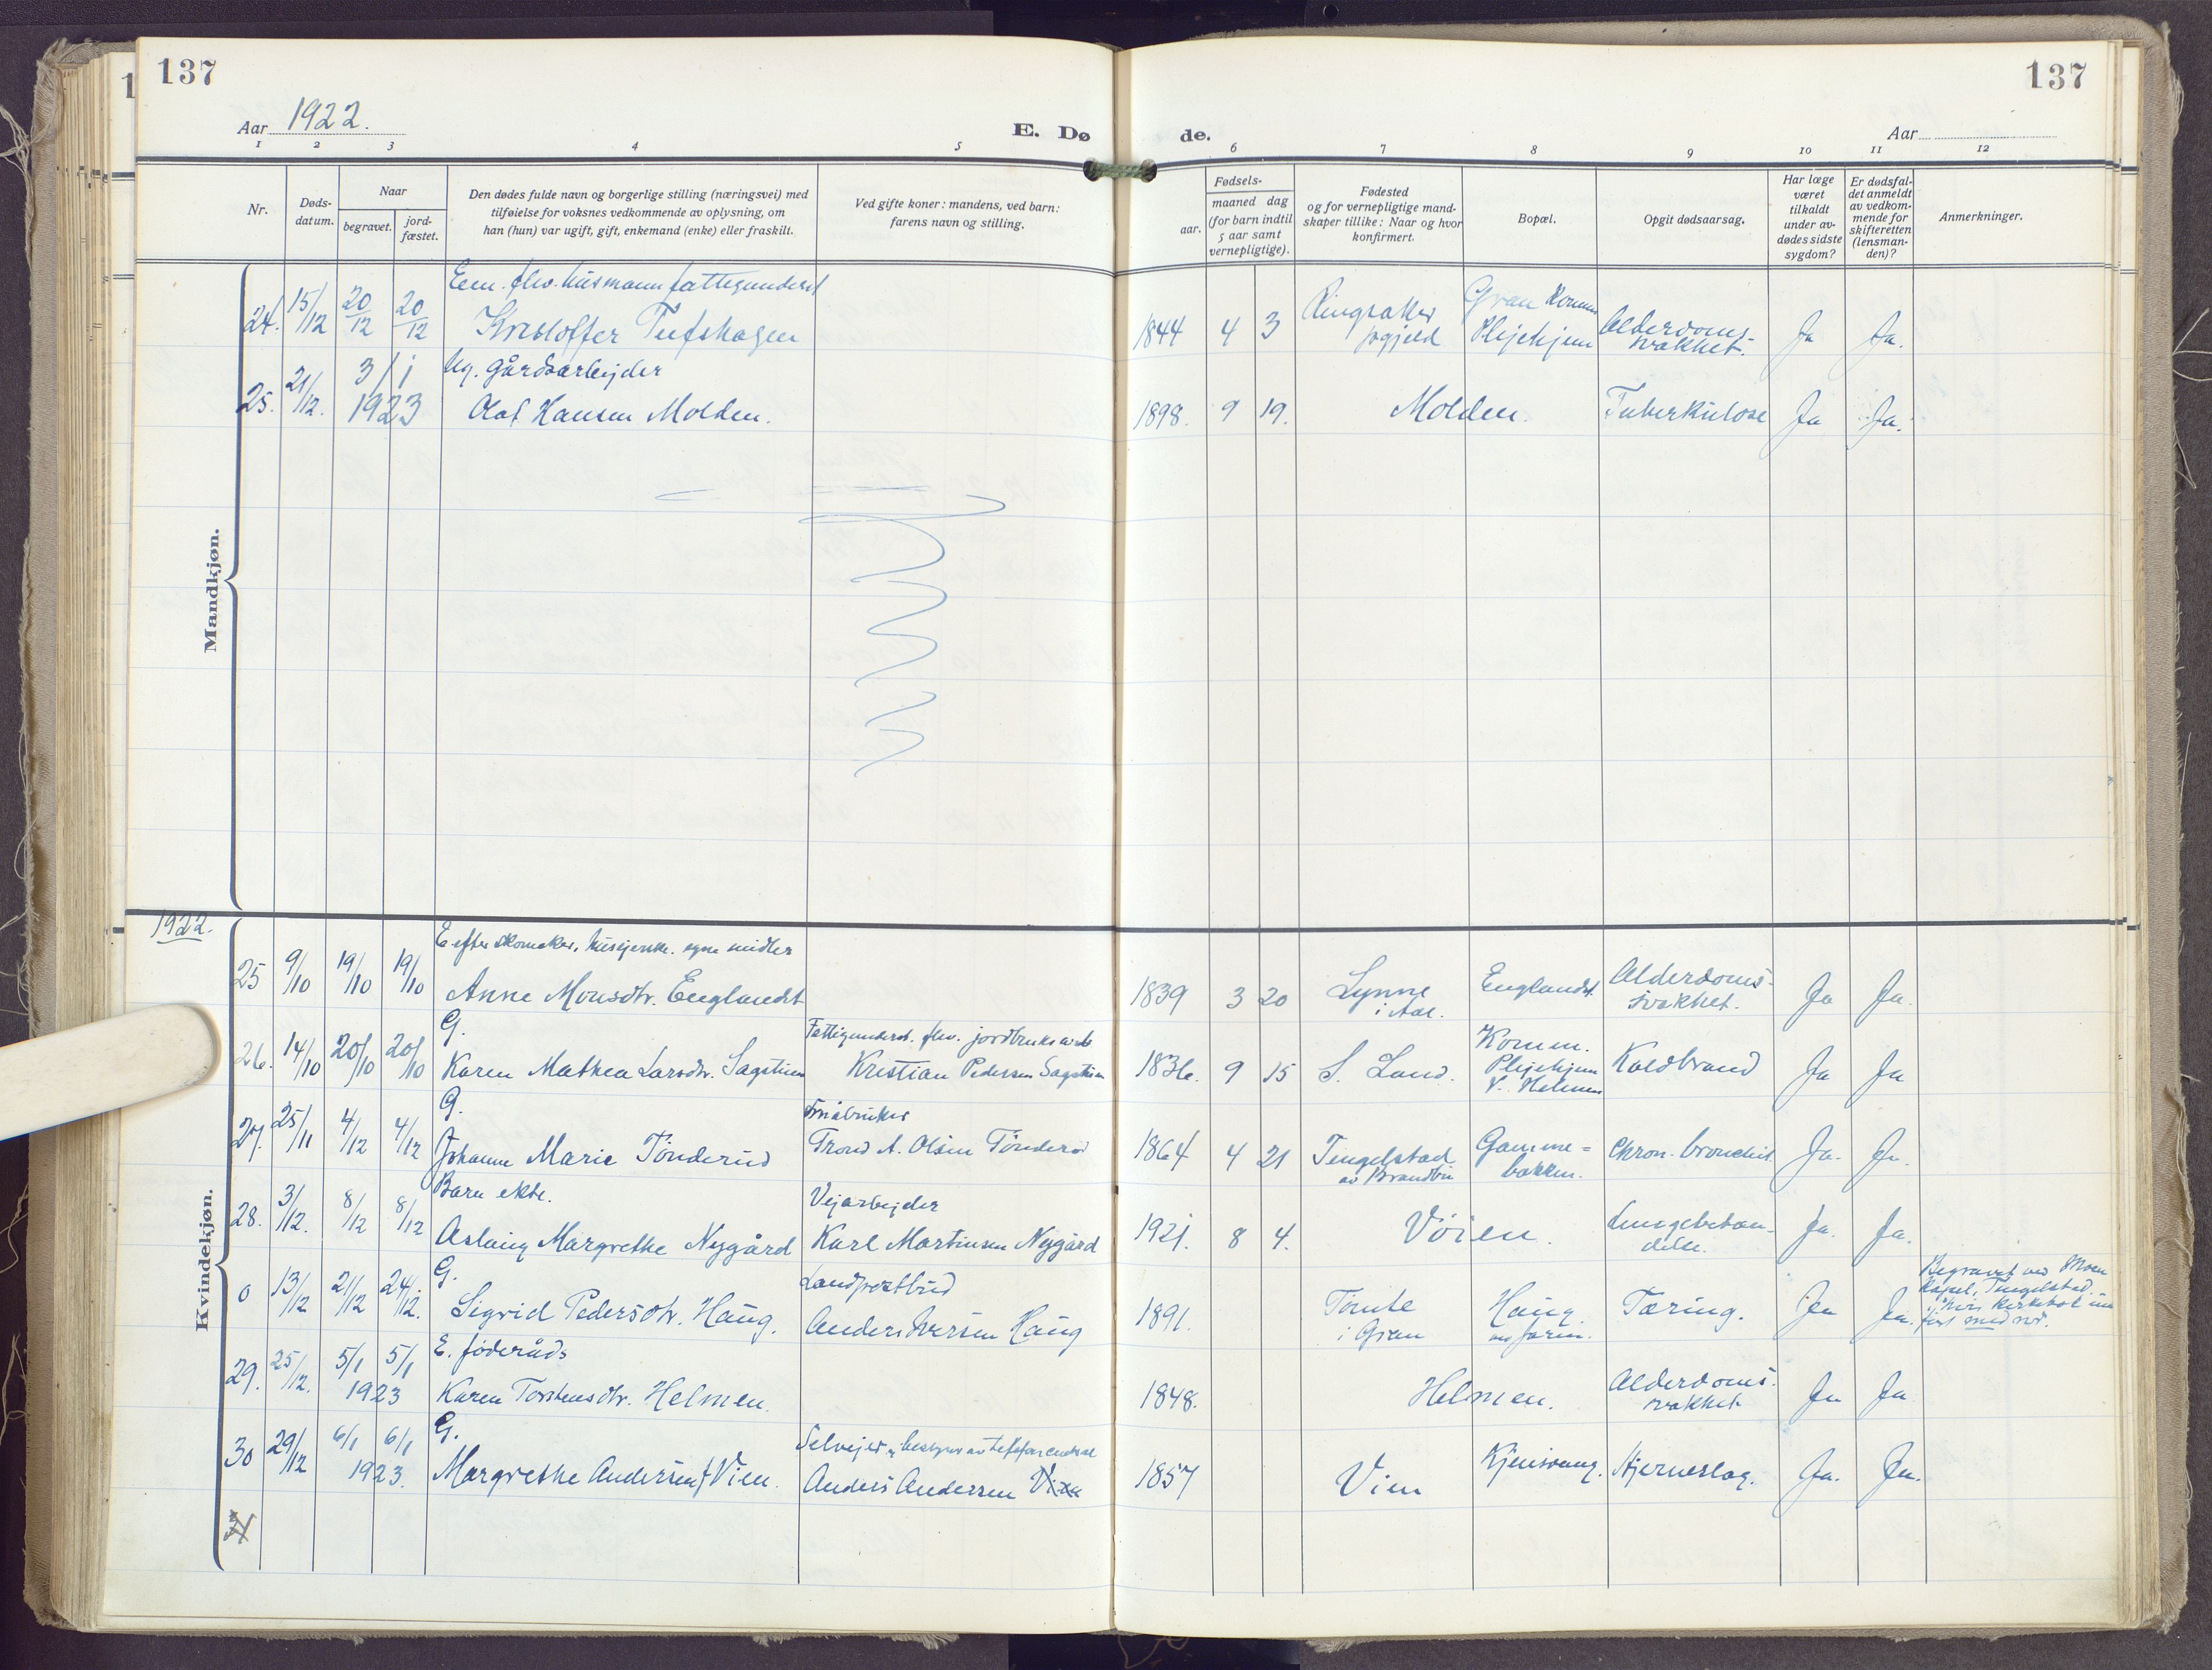 137
137
Aar 1922.
E. Dø de.
Aar
1 2 3 4 5 6 7 8 9 10 11 12
Nr.
Døds-
datum.
Naar
begravet.
jord-
fæstet.
Den dødes fulde navn og borgerlige stilling (næringsvei) med
tilføielse for voksnes vedkommende av oplysning, om
han (hun) var ugift, gift, enkemand (enke) eller fraskilt.
Ved gifte koner: mandens, ved barn:
farens navn og stilling.
Fødsels-
aar.
maaned dag
(for barn indtil
5 aar samt
vernepligtige).
Fødested
og for vernepligtige mand-
skaper tillike: Naar og hvor
konfirmert.
Bopæl.
Opgit dødsaarsag.
Har læge
været
tilkaldt
under av-
dødes sidste
sygdom?
Er dødsfal-
det anmeldt
av vedkom-
mende for
skifteretten
(lensman-
den)?
Anmerkninger.
Mandkjøn.
Em. fhv. husmann fattigunderst
24. 15/12 20/12 20/12 Kristoffer Tufshagen 1844 4 3 Ringsaker Gran Komm Alderdoms-
prgjeld Plejehjem svakhet. Ja Ja.
Ug. gårdsarbejder
25. 21/12. 3/1 1923 Olaf Hansen Molden. 1898. 9 19. Molden. Tuberkulose Ja Ja.
1922.
Kvindekjøn.
E. efter skomaker, husejerske. egne midler
25 9/10 19/10 19/10 Anne Monsdtr. Englandst 1839 3 20 Lynne Englandst. Alderdoms-
i Aal. svakhet. Ja Ja.
G. Fattigunderst. fhv. jordbruksarb
26. 14/10 20/10 20/10 Karen Mathea Larsdtr. Sagstuen Kristian Pedersen Sagstuen 1836. 9 15 S. Land. Komm.
Plejehjem
V. Helmen Koldbrand Ja Ja
G. Småbruker
27. 25/11 4/12 4/12 Johanne Marie Tönderud Trond A. Olsen Tönderud 1864 4 21 Tengelstad Gamme=
av Brandbu bakken. Chron. bronchit. Ja. Ja.
Barn ekte. Vejarbejder
28. 3/12. 8/12 8/12 Aslaug Margrethe Nygård Karl Martinsen Nygård 1921. 8 4. Vöien. Lungebetæn-
delse. Ja. Ja.
G. Landpostbud
0 13/12 21/12 24/12. Sigrid Pedersdtr. Haug. Anders Iversen Haug 1891. Tömte Haug
i Gran av Jaren. Tæring. Ja Ja.
Begravet ved Moen
Kapel, Tingelstad.
i hvis kirkebok inn
fört med nr.
E. föderåds
29. 25/12. 5/1 5/1 1923 Karen Torstensdtr. Helmen. 1848. Helmen. Alderdoms-
svakhet Ja Ja
G. Selvejer, bestyrer av telefoncentral
30 29/12 6/1 6/1 1923. Margrethe Andersen Vien. Anders Andersen Vien 1857 Vien Kjensvang. Hjerneslag. Ja. Ja.